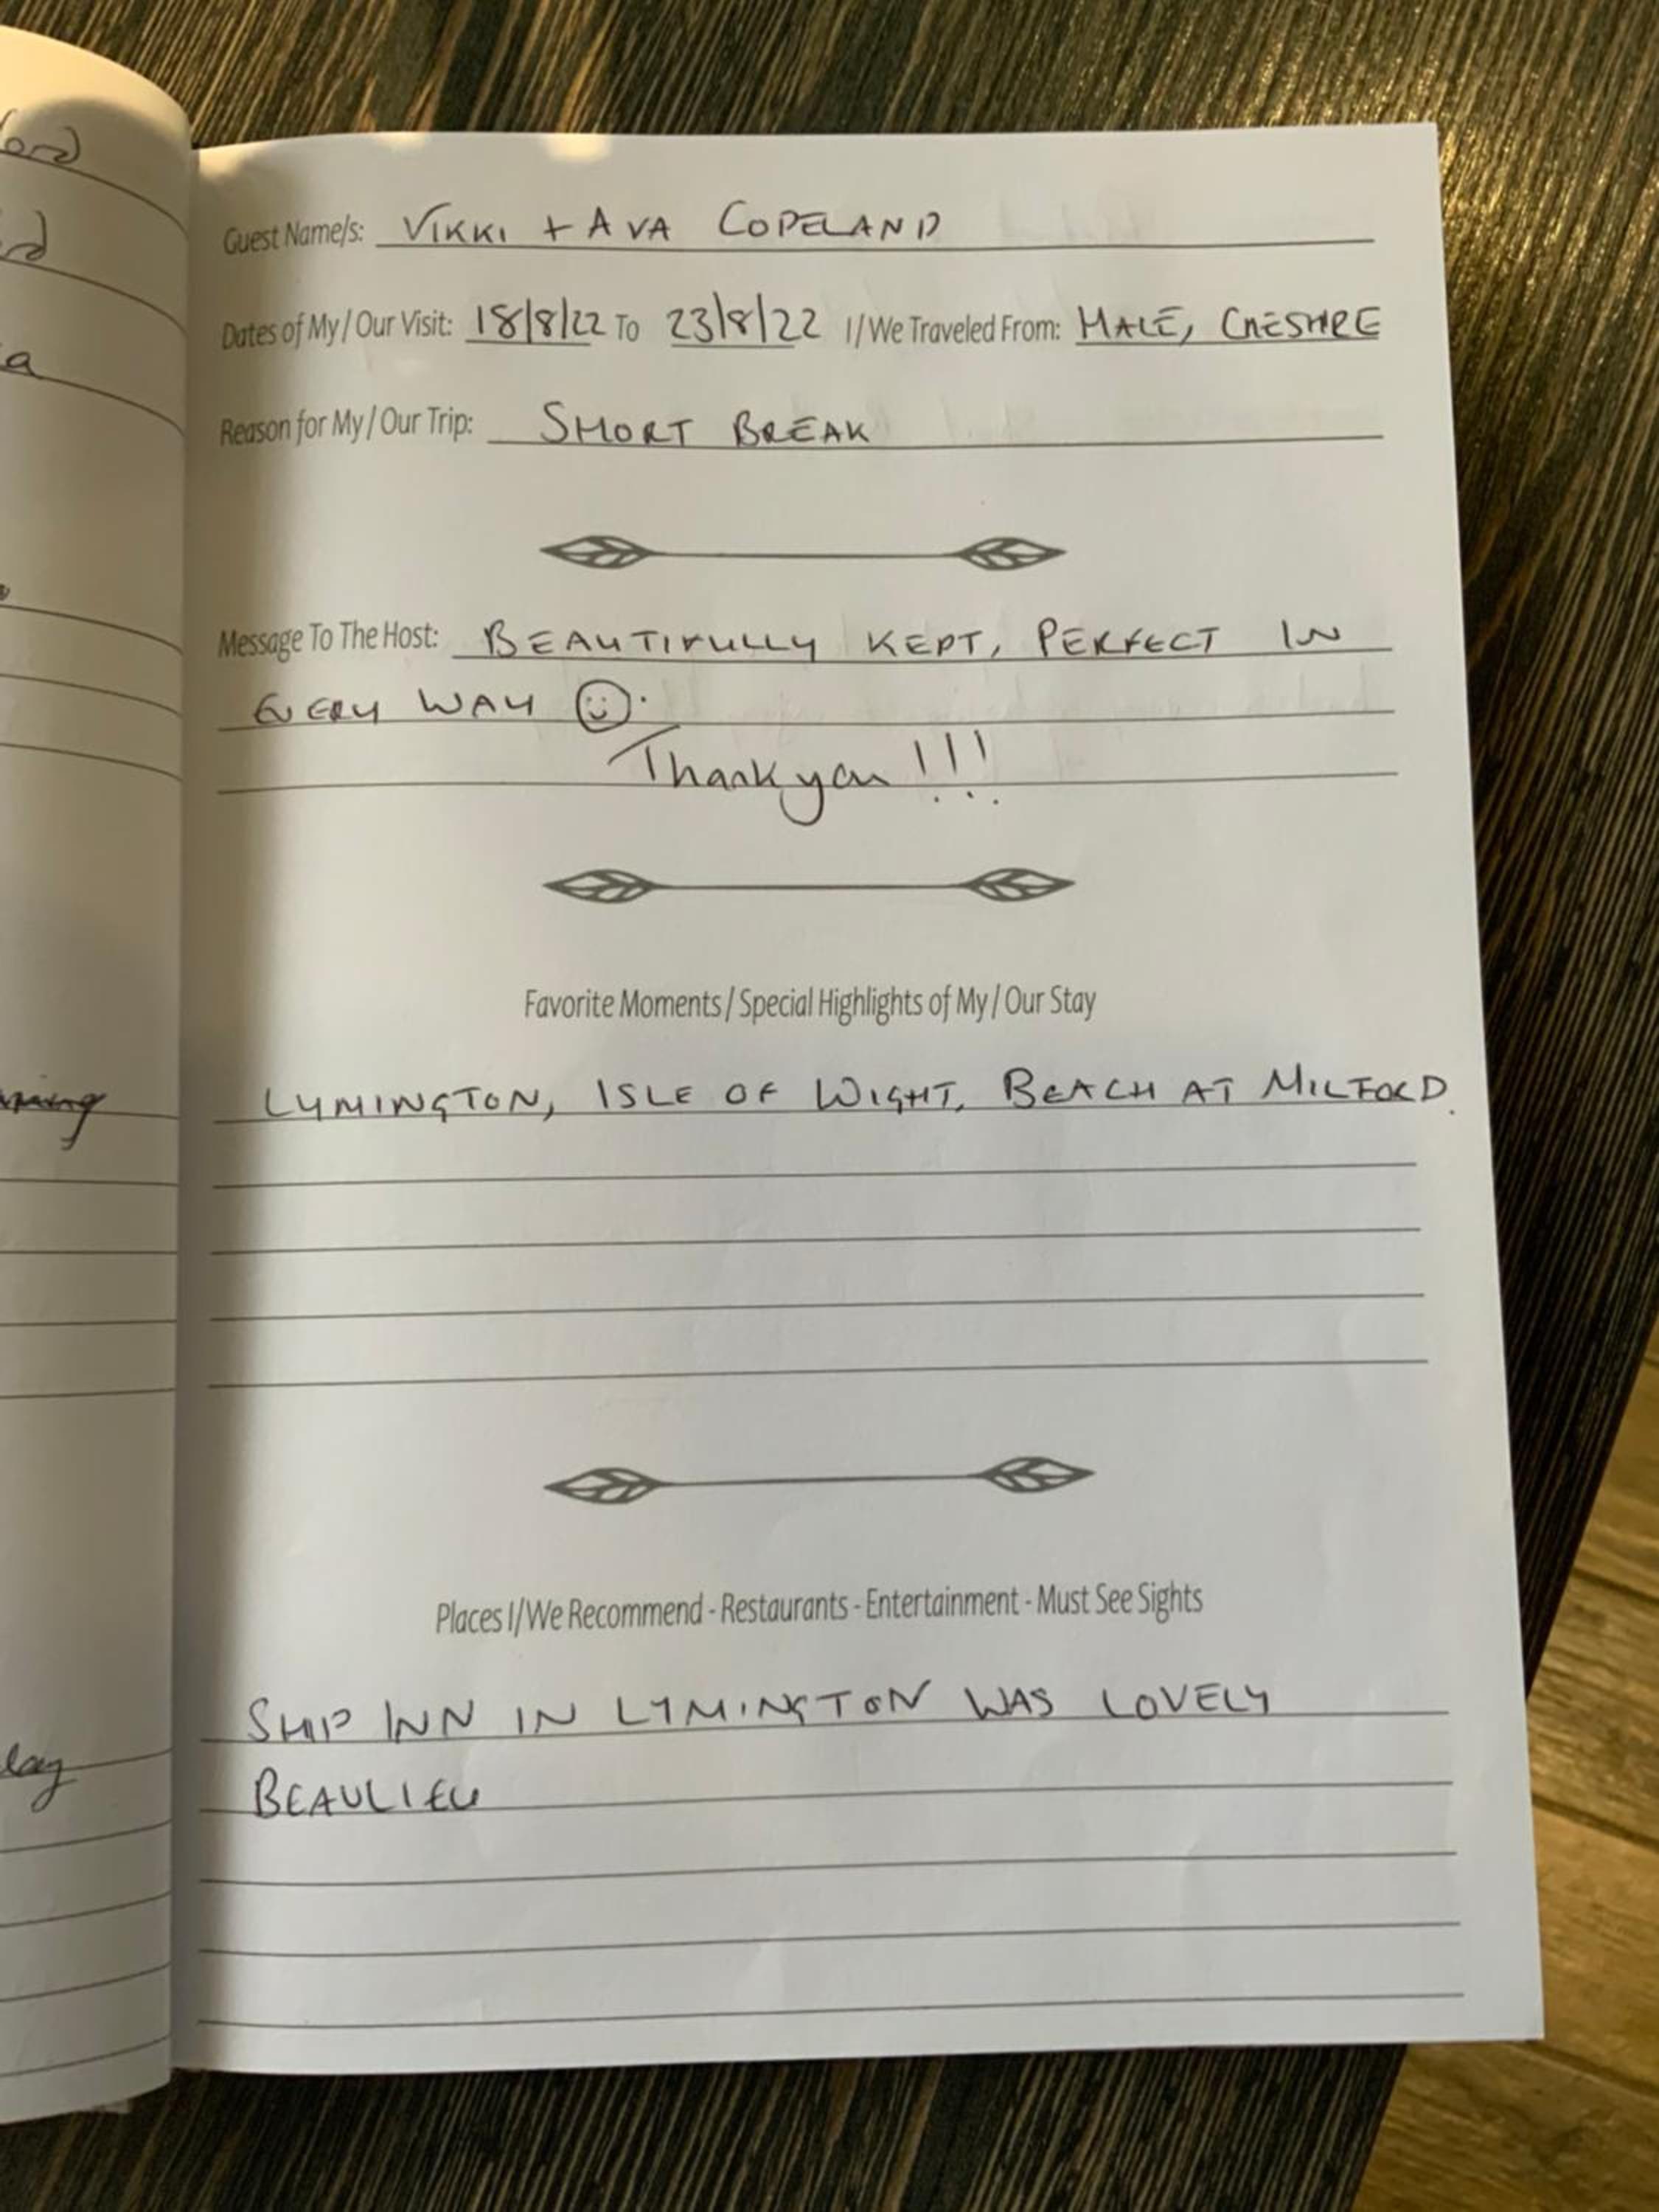 Guest Name/s: VIKKI + AVA COPELAND
Dates of My / Our Visit: 18/8/22 To 23/8/22 I/We Traveled From: HALE, CHESHIRE
Reason for My / Our Trip: SHORT BREAK
Message To The Host: BEAUTIFULLY KEPT, PERFECT IN
EVERY WAY ☺.
Thank you !!!
Favorite Moments / Special Highlights of My / Our Stay
LYMINGTON, ISLE OF WIGHT, BEACH AT MILFORD.
Places I/We Recommend - Restaurants - Entertainment - Must See Sights
SHIP INN IN LYMINGTON WAS LOVELY
BEAULIEU